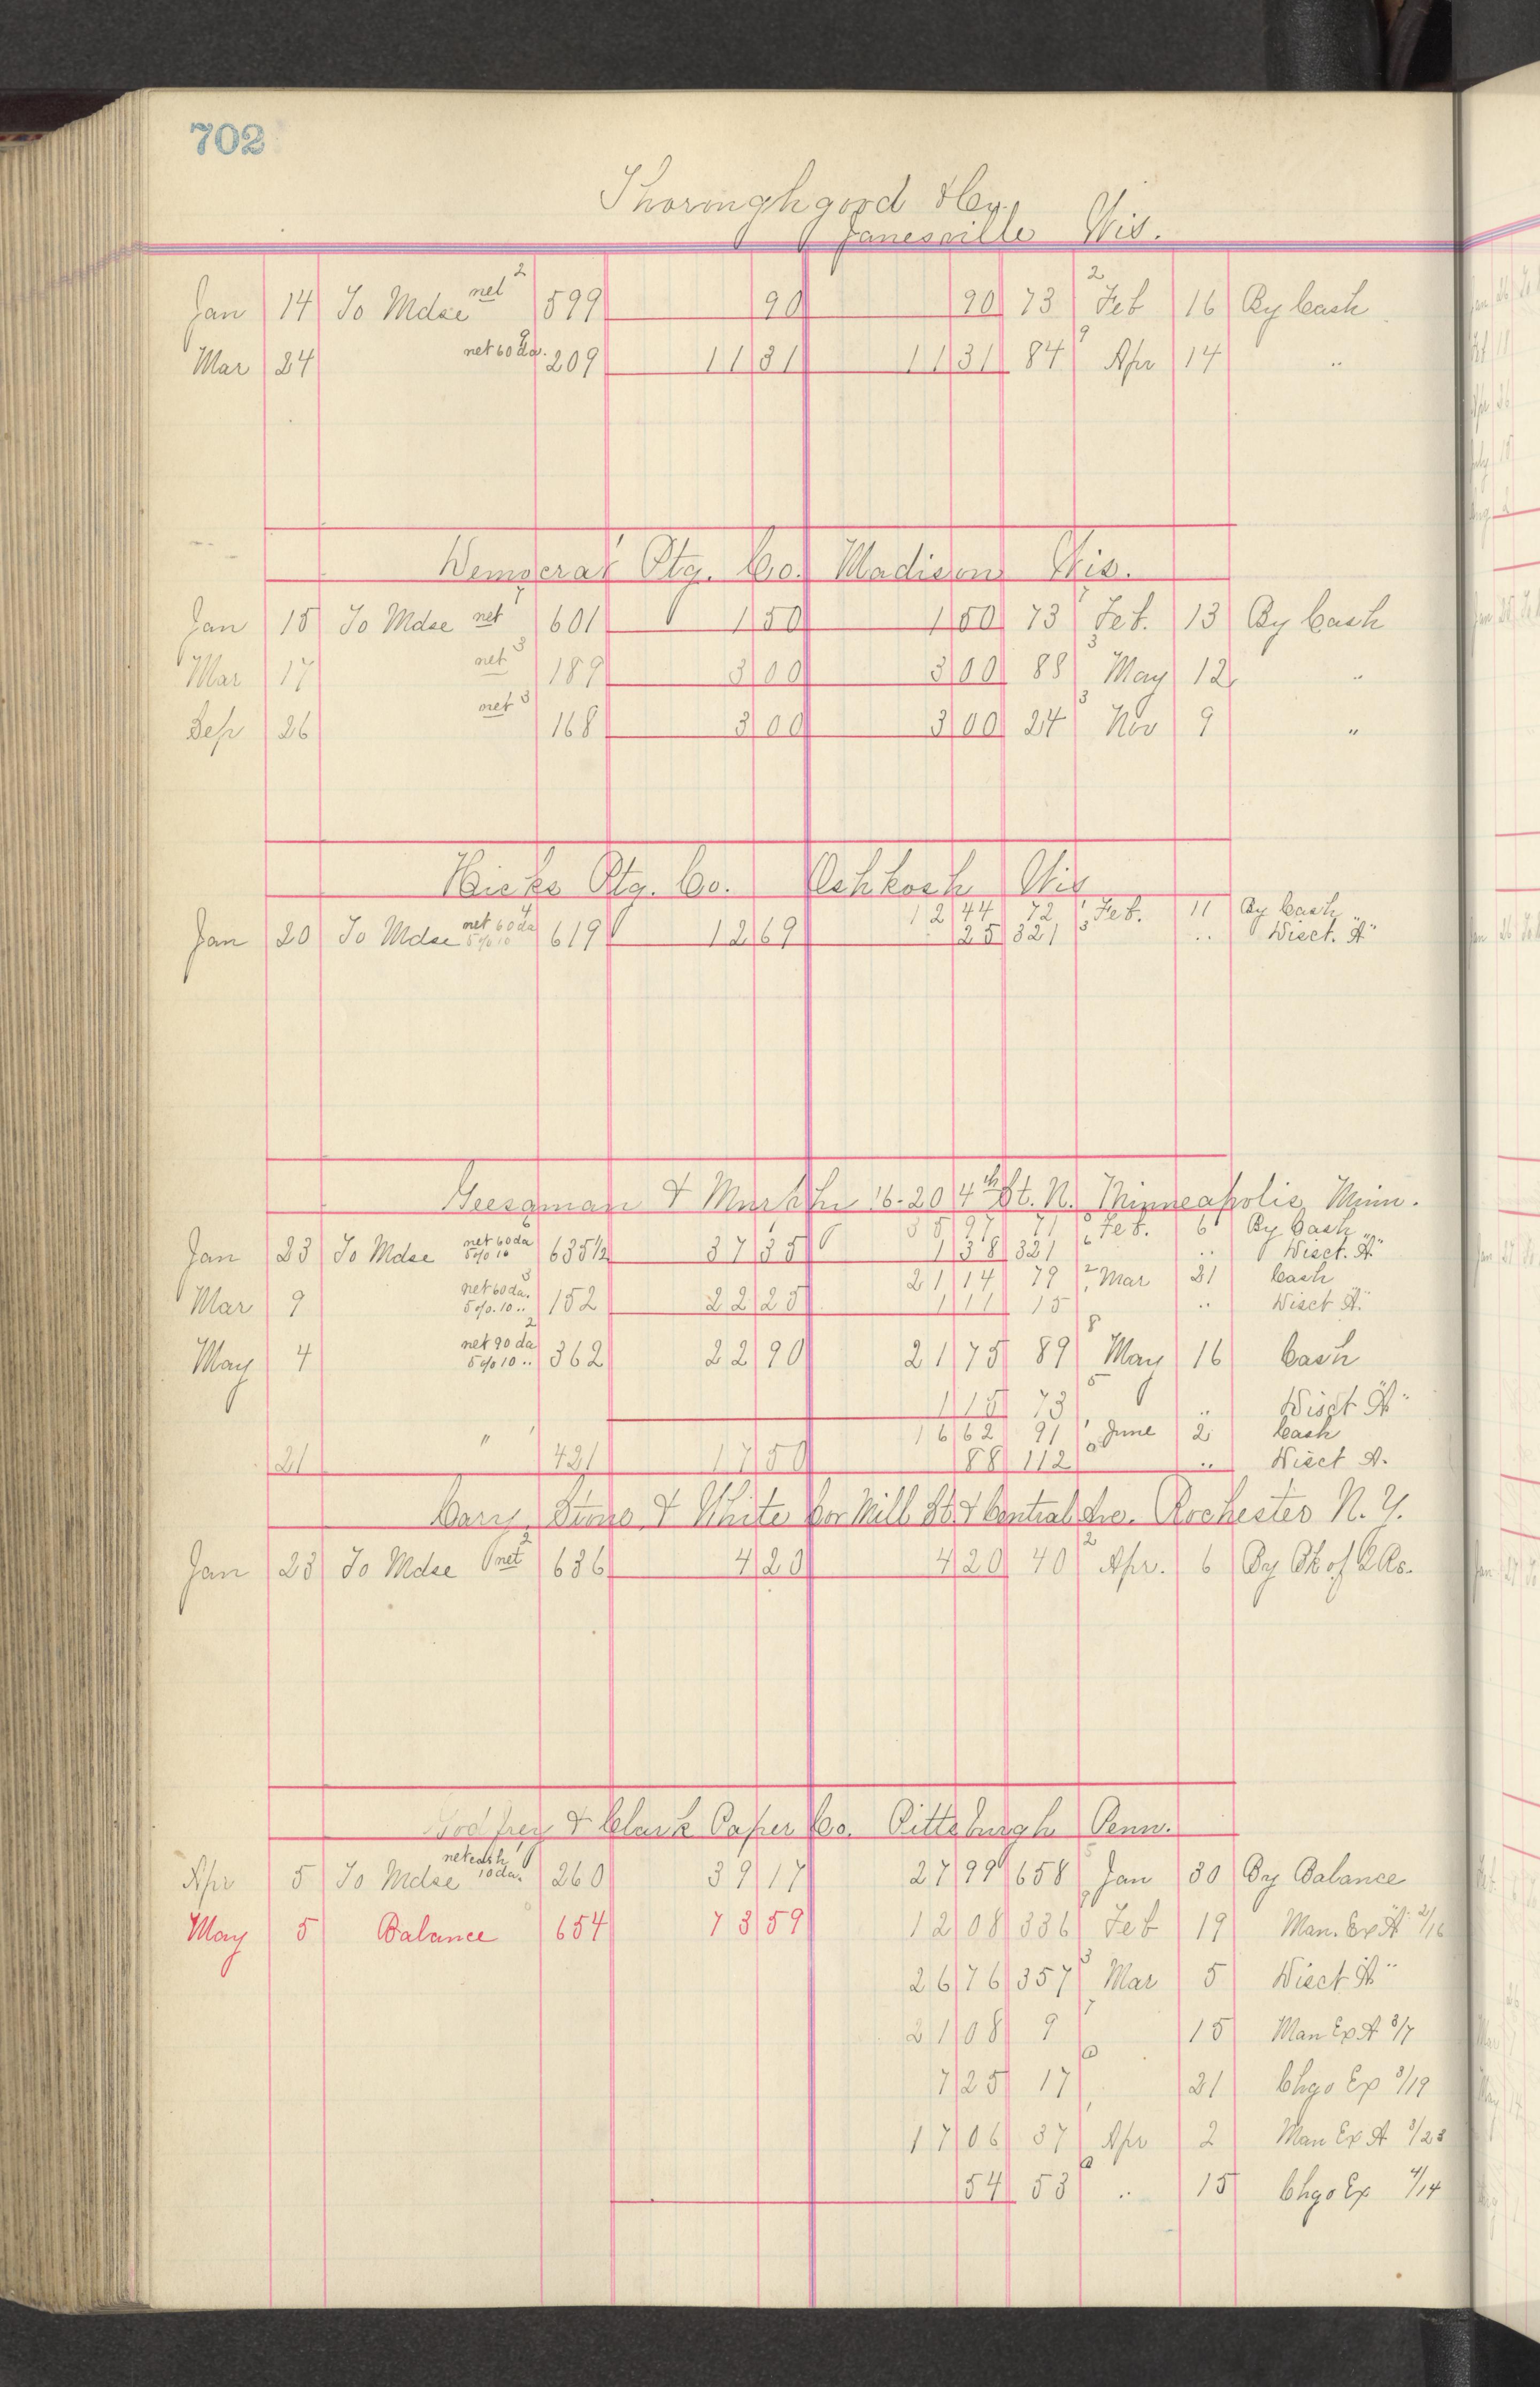 702
Thoroughgood & Co.,
Janesville Wis.
Jan 14 To Mdse net 2 599 90 90 73 2 Feb 16 By Cash
Mar 24 net 60 da. 9 209 11 31 11 31 84 9 Apr 14 "
Democrat Ptg. Co. Madison Wis.
Jan 15 To Mdse net 1 601 1 50 1 50 73 1 Feb. 13 By Cash
Mar 17 net 3 189 3 00 3 00 88 3 May 12 "
Sep 26 net 3 168 3 00 3 00 24 3 Nov 9 "
Hicks Ptg. Co. Oshkosh Wis
12 44 72 Feb. 11 By Cash
Jan 20 To Mdse net 60 da 5% 10 619 12 69 25 321 " Disct. A"
& 16-20 4th St. N. Minneapolis, Minn.
35 97 71 Feb. 6 By Cash
Jan 23 To Mdse net 60 da 5% 10 635½ 37 35 1 38 321 " Disct. A"
21 14 79 Mar 21 Cash
Mar 9 net 60 da. 5%. 10 " 152 22 25 1 11 15 " Disct A"
May 4 net 90 da 5% 10 " 362 22 90 21 75 89 May 16 Cash
1 15 73 " Disct A"
16 62 91 June 2 Cash
21 " 421 17 50 88 112 " Disct A.
Carr, & White Cor Mill St & Central Ave. Rochester N. Y.
Jan 23 To Mdse net 2 636 4 20 4 20 40 2 Apr. 6 By Ck of
Godfrey & Clark Paper Co. Pittsburgh Penn.
Apr 5 To Mdse net cash 10 da. 260 39 17 27 99 658 Jan 30 By Balance
May 5 Balance 654 73 59 12 08 336 Feb 19 Man. Ex A" 2/16
26 76 357 Mar 5 Disct A"
21 08 9 15 Man Ex A 3/7
7 25 17 21 Chgo Ex 3/19
17 06 37 Apr 2 Man Ex A 3/23
54 53 " 15 Chgo Ex 4/14